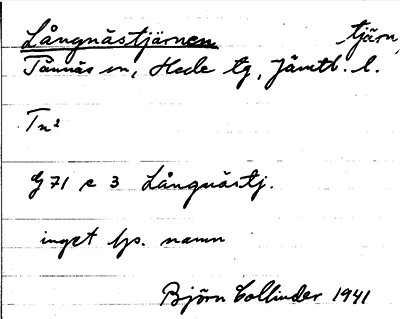 Långnästjärnen tjärn,
Tännäs sn, Hede tg, Jämtl. l.
Tn²
G 71 c 3 Långnästj.
inget lp. namn
Björn Collinder 1941